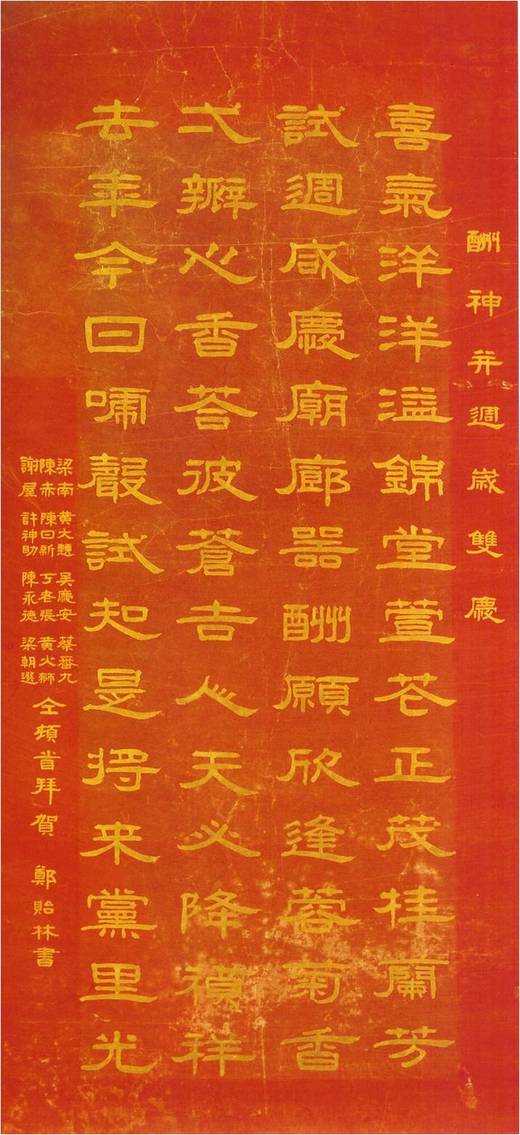 酬神并週歲雙慶
喜氣洋洋溢錦堂萱花正茂桂蘭芳
試週咸慶廟廊器酬願欣逢蓉菊香
弌瓣心香荅彼蒼吉人天必降禎祥
去年今日啼聲試知是將来黨里光
梁南 黄大 吴慶安 蔡番九
陳赤 陳日新 丁老張 黄火獅
謝屋 許神助 陳永德 梁朝選
仝頓首拜賀 鄭貽林書